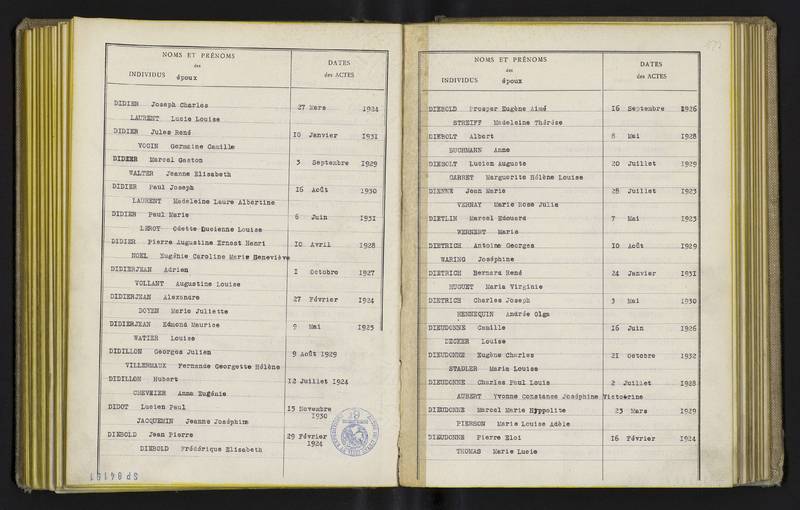 NOMS ET PRÉNOMS
des
INDIVIDUS époux
DATES
des ACTES
DIDIER Joseph Charles 27 Mars 1924
LAURENT Lucie Louise
DIDIER Jules René 10 Janvier 1931
VOGIN Germaine Camille
DIDIER Marcel Gaston 3 Septembre 1929
WALTER Jeanne Elisabeth
DIDIER Paul Joseph 16 Août 1930
LAURENT Madeleine Laure Albertine
DIDIER Paul Marie 6 Juin 1931
LEROY Odette Lucienne Louise
DIDIER Pierre Augustine Ernest Henri 10 Avril 1928
NOEL Eugénie Caroline Marie Geneviève
DIDIERJEAN Adrien 1 Octobre 1927
VOLLANT Augustine Louise
DIDIERJEAN Alexandre 27 Février 1924
DOYEN Marie Juliette
DIDIERJEAN Edmond Maurice 9 Mai 1925
WATIER Louise
DIDILLON Georges Julien 9 Août 1929
VILLERMAUX Fernande Georgette Hélène
DIDILLON Hubert 12 Juillet 1924
CHEVRIER Anna Eugénie
DIDOT Lucien Paul 15 Novembre
1930
JACQUEMIN Jeanne Joséphine
DIEBOLD Jean Pierre 29 Février
1924
DIEBOLD Frédérique Elisabeth
NOMS ET PRÉNOMS
des
INDIVIDUS époux
DATES
des ACTES
DIEBOLD Prosper Eugène Aimé 16 Septembre 1926
STREIFF Madeleine Thérèse
DIEBOLT Albert 8 Mai 1928
BUCHMANN Anne
DIEBOLT Lucien Auguste 20 Juillet 1929
GARRET Marguerite Hélène Louise
DIENNE Jean Marie 28 Juillet 1923
VERNAY Marie Rose Julia
DIETLIN Marcel Edouard 7 Mai 1923
WERNERT Marie
DIETRICH Antoine Georges 10 Août 1929
WARING Joséphine
DIETRICH Bernard René 24 Janvier 1931
HUGUET Maria Virginie
DIETRICH Charles Joseph 3 Mai 1930
HENNEQUIN Andrée Olga
DIEUDONNE Camille 16 Juin 1926
DECKER Louise
DIEUDONNE Eugène Charles 21 Octobre 1932
STADLER Maria Louise
DIEUDONNE Charles Paul Louis 2 Juillet 1928
AUBERT Yvonne Constance Joséphine Victorine
DIEUDONNE Marcel Marie Hyppolite 23 Mars 1929
PIERSON Marie Louise Adèle
DIEUDONNE Pierre Eloi 16 Février 1924
THOMAS Marie Lucie